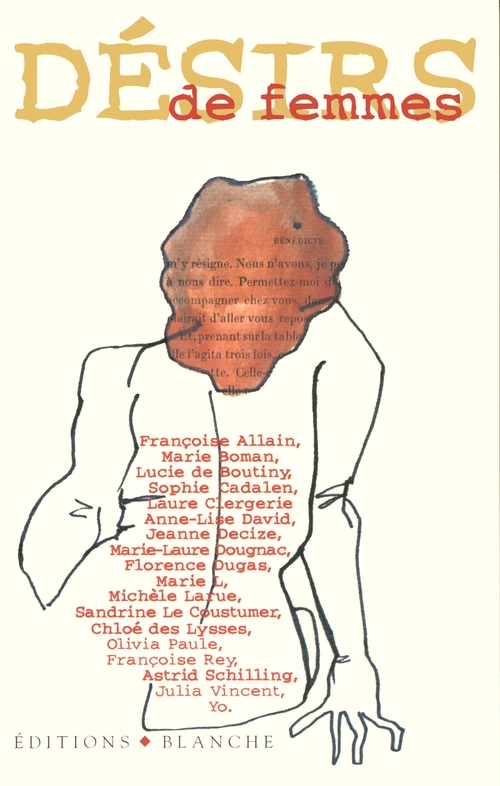 DÉSIRS
de femmes
BÉNÉDICTE
m'y résigne. Nous n'avons, je
à nous dire. Permettez-moi
accompagner chez vous, dans
plairait d'aller vous
Et, prenant sur la table
lle l'agita trois fois,
tte. Celle-
elle
Françoise Allain,
Marie Boman,
Lucie de Boutiny,
Sophie Cadalen,
Laure Clergerie
Anne-Lise David,
Jeanne Decize,
Marie-Laure Dougnac,
Florence Dugas,
Marie L,
Michèle Larue,
Sandrine Le Coustumer,
Chloé des Lysses,
Olivia Paule,
Françoise Rey,
Astrid Schilling,
Julia Vincent,
Yo.
ÉDITIONS ◆ BLANCHE